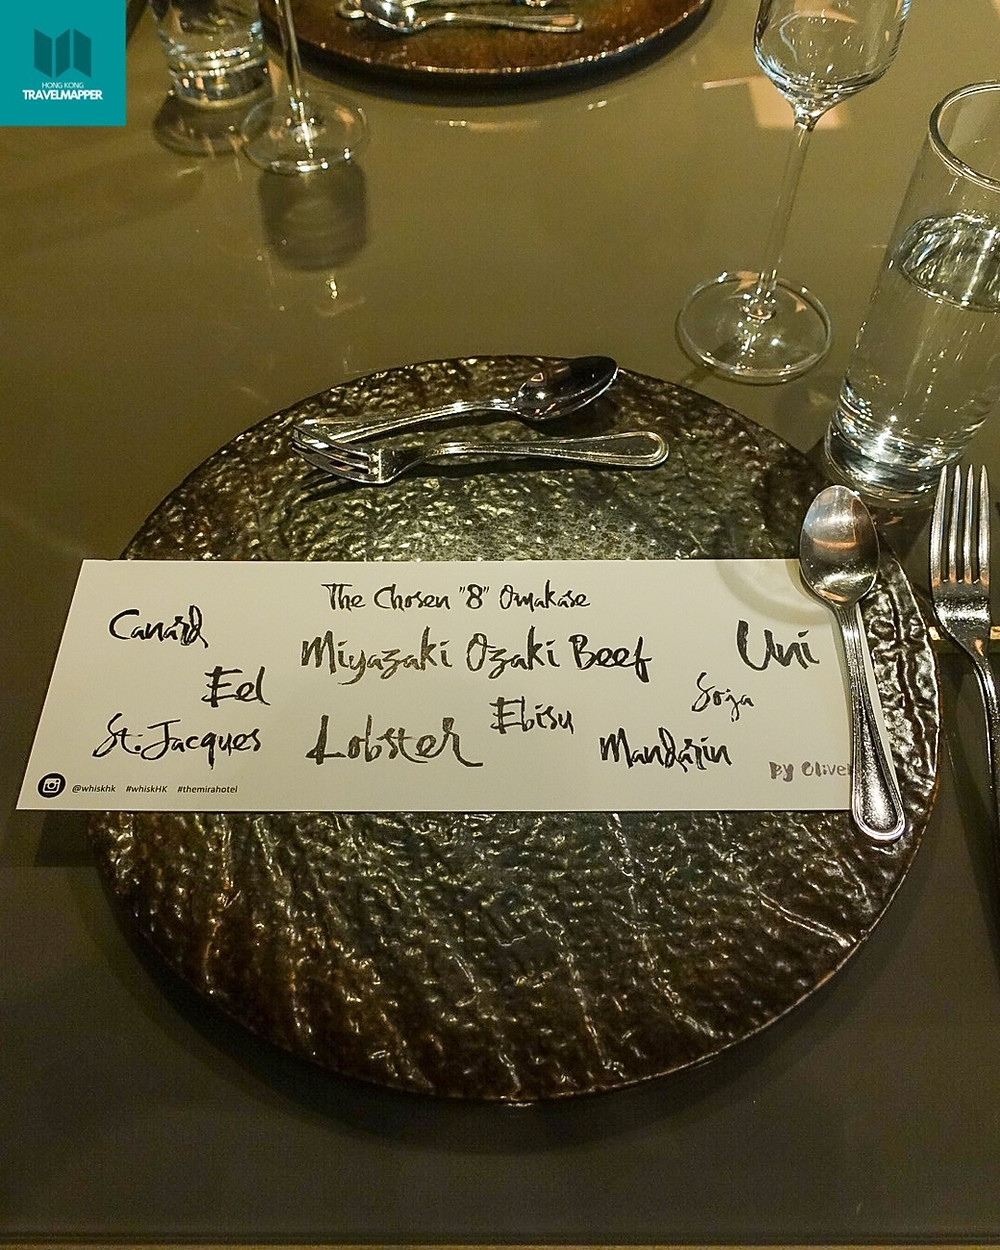 HONG KONG
TRAVELMAPPER
The Chosen "8" Omakase
Canard
Miyazaki Ozaki Beef
Uni
Eel
Soja
Ebisu
St. Jacques
Lobster
Mandarin
By Oliver
@whiskhk #whiskHK #themirahotel